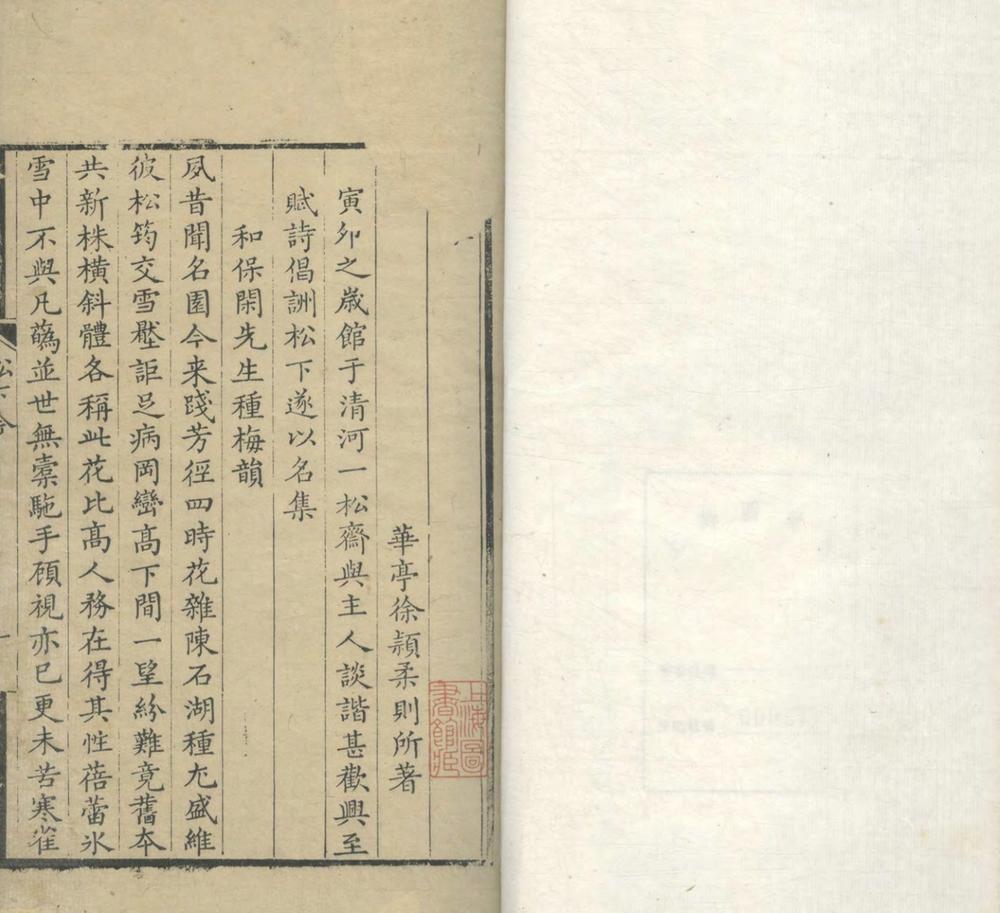 華亭徐頴柔則所著
寅夘之歲館于清河一松齋與主人談諧甚歡興至
賦詩倡訓松下遂以名集
和保閑先生種梅韻
夙昔聞名園今来踐芳徑四時花雜陳石湖種尤盛維
彼松筠交雪壓詎足病岡巒髙下間一望紛難竟舊本
共新株橫斜體各稱此花比髙人務在得其性蓓蕾氷
雪中不與凡蘤並世無槖駞手顧視亦已更未苦寒雀
上海圖書館臧